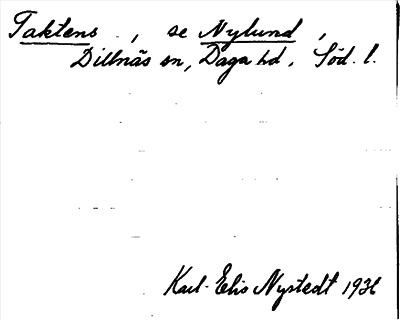 Taktens , se Nylund ,
Dillnäs sn, Daga hd. Söd. l.
Karl-Elis Nystedt 1936